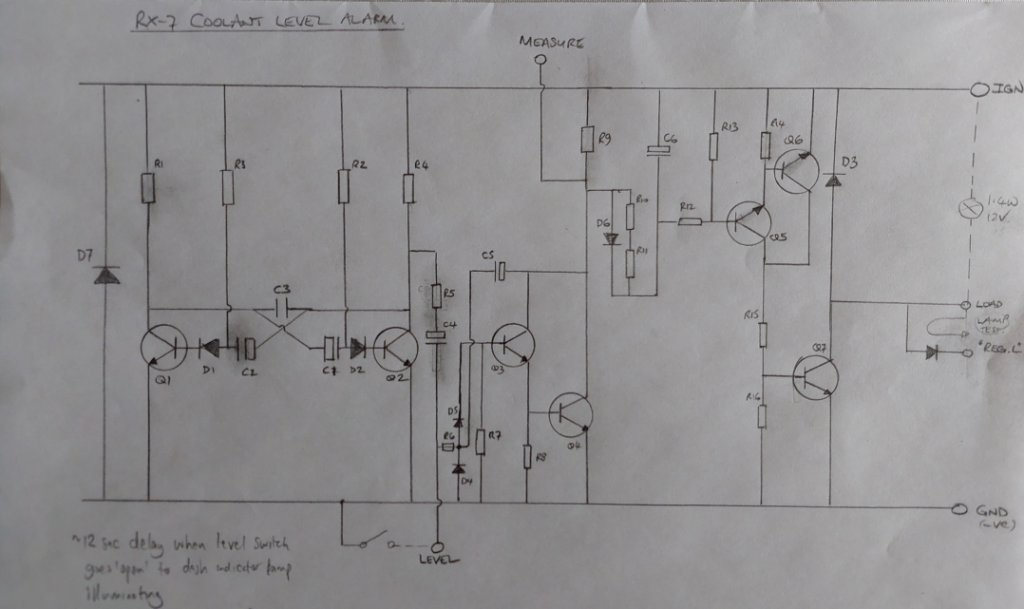 RX-7 COOLANT LEVEL ALARM.
MEASURE
IGN
R1
R3
R2
R4
R9
C6
R13
R4
Q6
D3
1.4W
12V.
D7
C3
R5
C4
C5
D6
R10
R11
R12
Q5
LOAD
LAMP
TEST
"REG. L"
Q1
D1
C2
C1
D2
Q2
Q3
D5
R6
R7
D4
R8
Q4
R15
R16
Q7
GND
(-ve)
LEVEL
~12 sec delay when level switch
goes 'open' to dash indicator lamp
illuminating